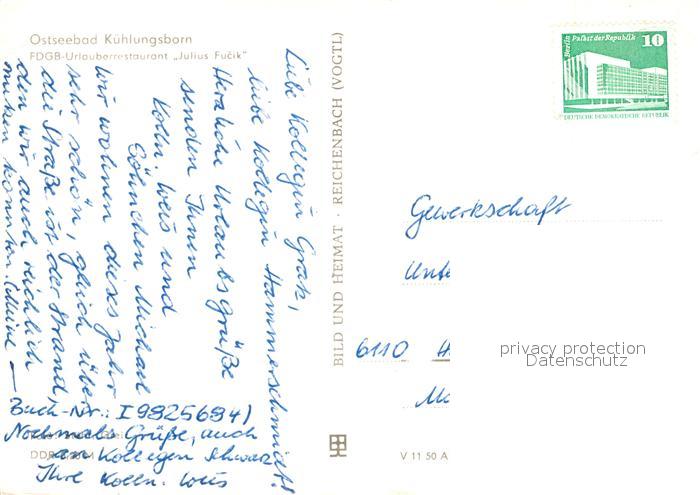 Ostseebad Kühlungsborn
FDGB-Urlauberrestaurant „Julius Fučik"
Liebe Kollegin Gratz,
liebe Kollegin Hammerschmidt!
Herzliche Urlaubsgrüße
senden Ihnen
Kolln. Weis und
Söhnchen Michael
Wir wohnen dieses Jahr
sehr schön, gleich über
die Straße ist der Strand,
den wir auch reichlich
nutzen konnten. (Meine
Buch-Nr.: I 9825684)
Nochmals Grüße, auch
an Kollegen Schwarz
Ihre Kolln. Weis
DDR
BILD UND HEIMAT · REICHENBACH (VOGTL)
V 11 50 A
Berlin Palast der Republik 10
DEUTSCHE DEMOKRATISCHE REPUBLIK
Gewerkschaft
Unte
6110 H
privacy protection
Datenschutz